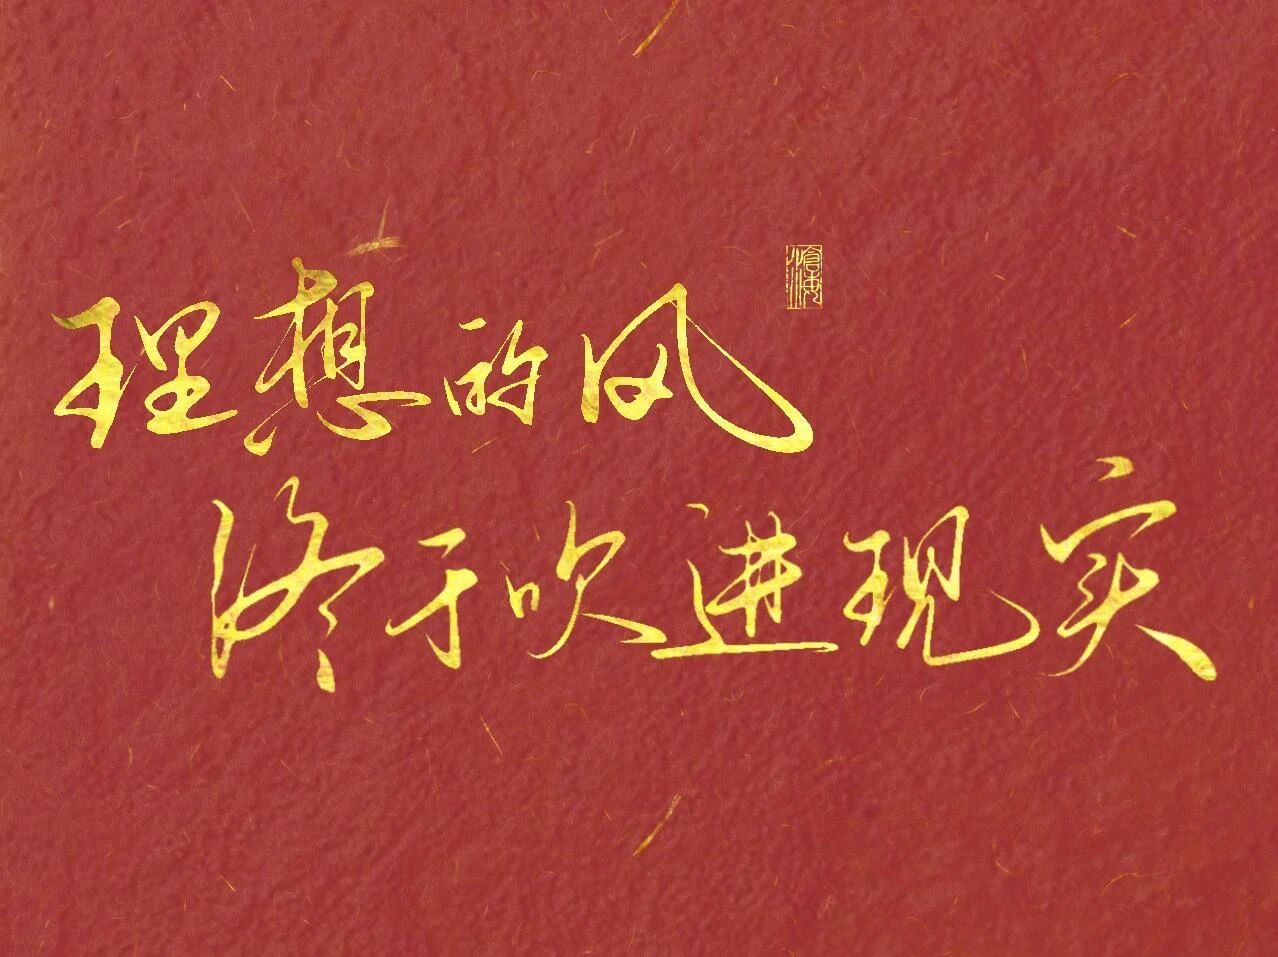 理想的风
终于吹进现实
滄海